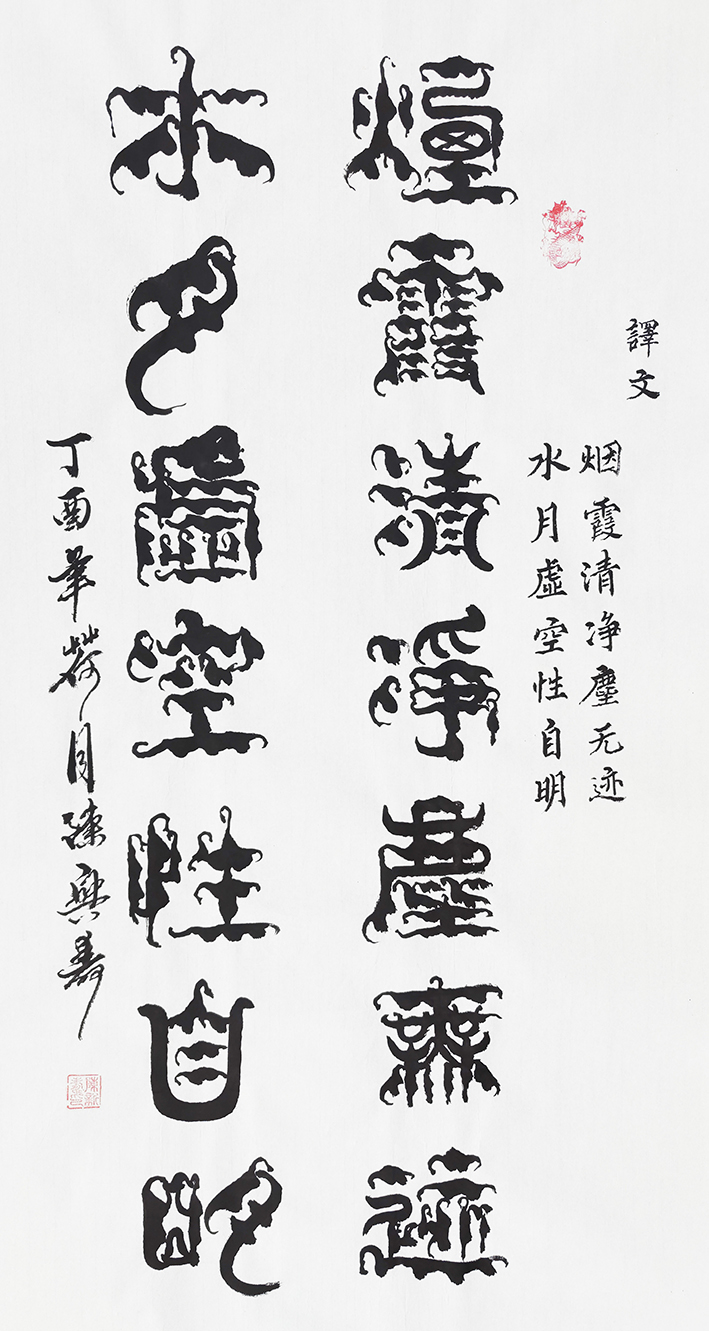 譯文
烟霞清净塵无迹
水月虛空性自明
煙霞清淨塵無迹
水月虛空性自明
丁酉年荷月陳興壽